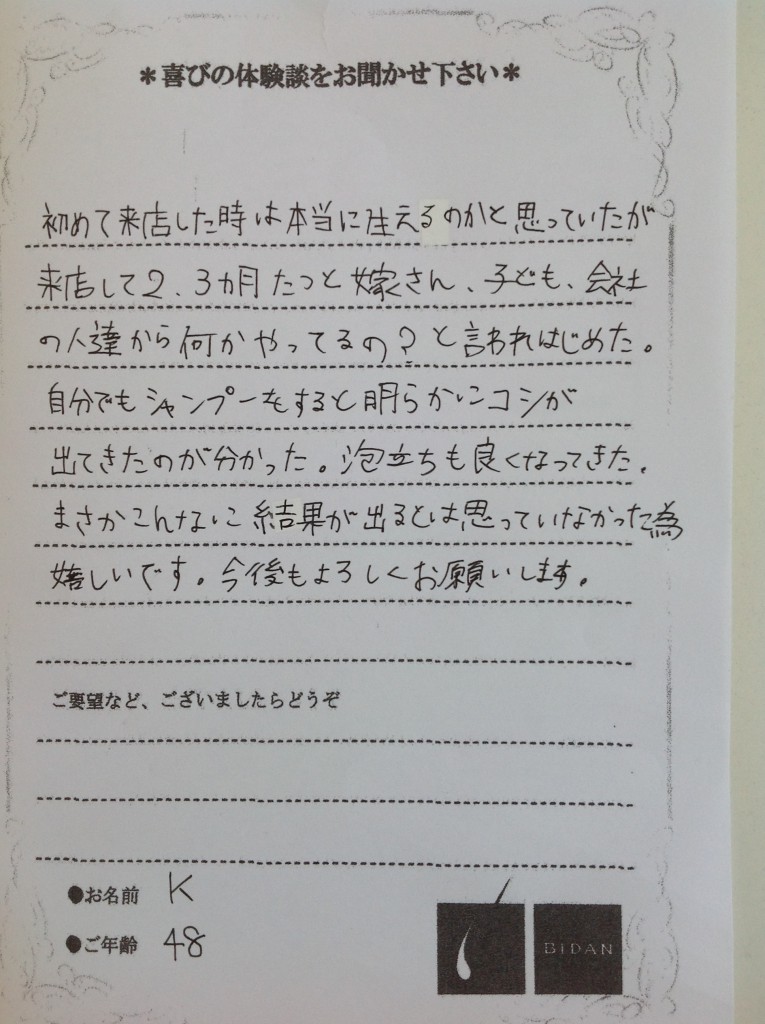 ＊喜びの体験談をお聞かせ下さい＊
初めて来店した時は本当に生えるのかと思っていたが
来店して2、3カ月たつと嫁さん、子ども、会社
の人達から何かやってるの？と言われはじめた。
自分でもシャンプーをすると明らかにコシが
出てきたのが分かった。泡立ちも良くなってきた。
まさかこんなに結果が出るとは思っていなかった為
嬉しいです。今後もよろしくお願いします。
ご要望など、ございましたらどうぞ
●お名前 K
●ご年齢 48
BIDAN